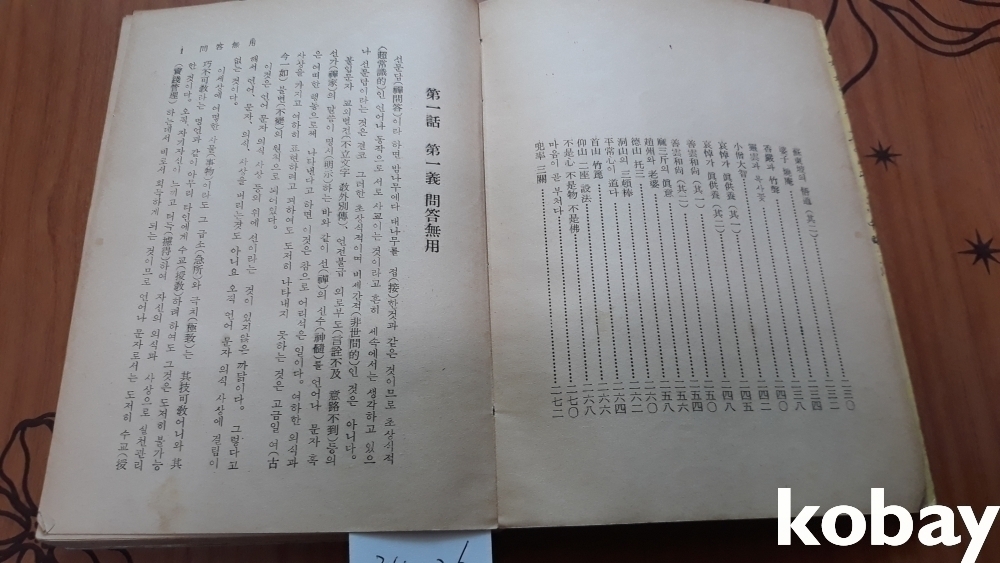 蘇東坡의 悟道(其二)……二三〇
婆子 燒庵……二三二
香嚴과 竹聲……二三四
靈雲과 욕사꽃……二三八
小僧大智……二四〇
哀悼가 眞供養(其一)……二四二
哀悼가 眞供養(其二)……二四五
善雲和尙(其一)……二四八
善雲和尙(其二)……二五〇
麻三斤의 眞意……二五四
趙州와 老婆……二五六
德山 托三……二五八
洞山의 三頓棒……二六〇
平常心이 道다……二六二
首山 竹篦……二六四
仰山 二座說法……二六六
不是心 不是物 不是佛……二六八
마음이 곧 부처다……二七〇
兜率 三關……二七二
第一話 第一義 問答無用
선문답(禪問答)이라 하면 밤나무에다 대나무를 접(接)한것과 같은 것이므로 초상식적
(超常識的)인 언어나 동작으로 서로 사교이는 것이라고 흔히 세속에서는 생각하고 있으
나 선문답이라는 것은 결코 그러한 초상식적이며 비세간적(非世間的)인 것은 아니다。
불입문자 교외별전(不立文字 敎外別傳)、언전불급 의로부도(言詮不及 意路不到)등의
선가(禪家)의 말씀이 명시(明示)하는 바와 같이 선(禪)의 신수(神髓)를 언어나 문자 혹
은 어떠한 행동으로써 나타낸다고 하면 이것은 참으로 어리석은 일이다。여하한 의식과
사상을 가지고 여하히 표현하려고 꾀하여도 도저히 나타내지 못하는 것은 고금일 여(古
今一如) 불변(不變)의 원칙으로 되어있다。
이것은 언어 문자 의식 사상 등의 위에 선이라는 것이 있지않은 까닭이다。그렇다고
해서 언어、문자、의식、사상을 버리는것도 아니요 오직 언어 문자 의식 사상에 걸림이
없는 것이다。
이세상에 어떠한 사물(事物)이라도 그 급소(急所)와 극치(極致)는 其技可敎어니와 其
巧不可敎라는 명언과 같이 아무리 타인에게 수교(授敎)하려 하여도 그것은 도저히 불가능
한 것이다。오직 자기자신이 느끼고 터득(攄得)하여 자신의 의식과 사상으로 실천관리
(實踐管理)하는데서 비로서 회득하게 되는 것이므로 언어나 문자로서는 도저히 수교(授
問答無用
1
kobay